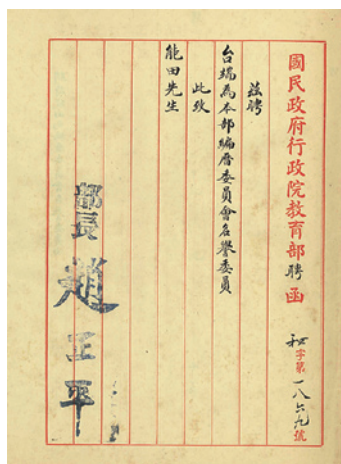 國民政府行政院教育部聘函
秘字第一八六九號
茲聘
台端為本部編曆委員會名譽委員
此致
能田先生
部長 趙正平